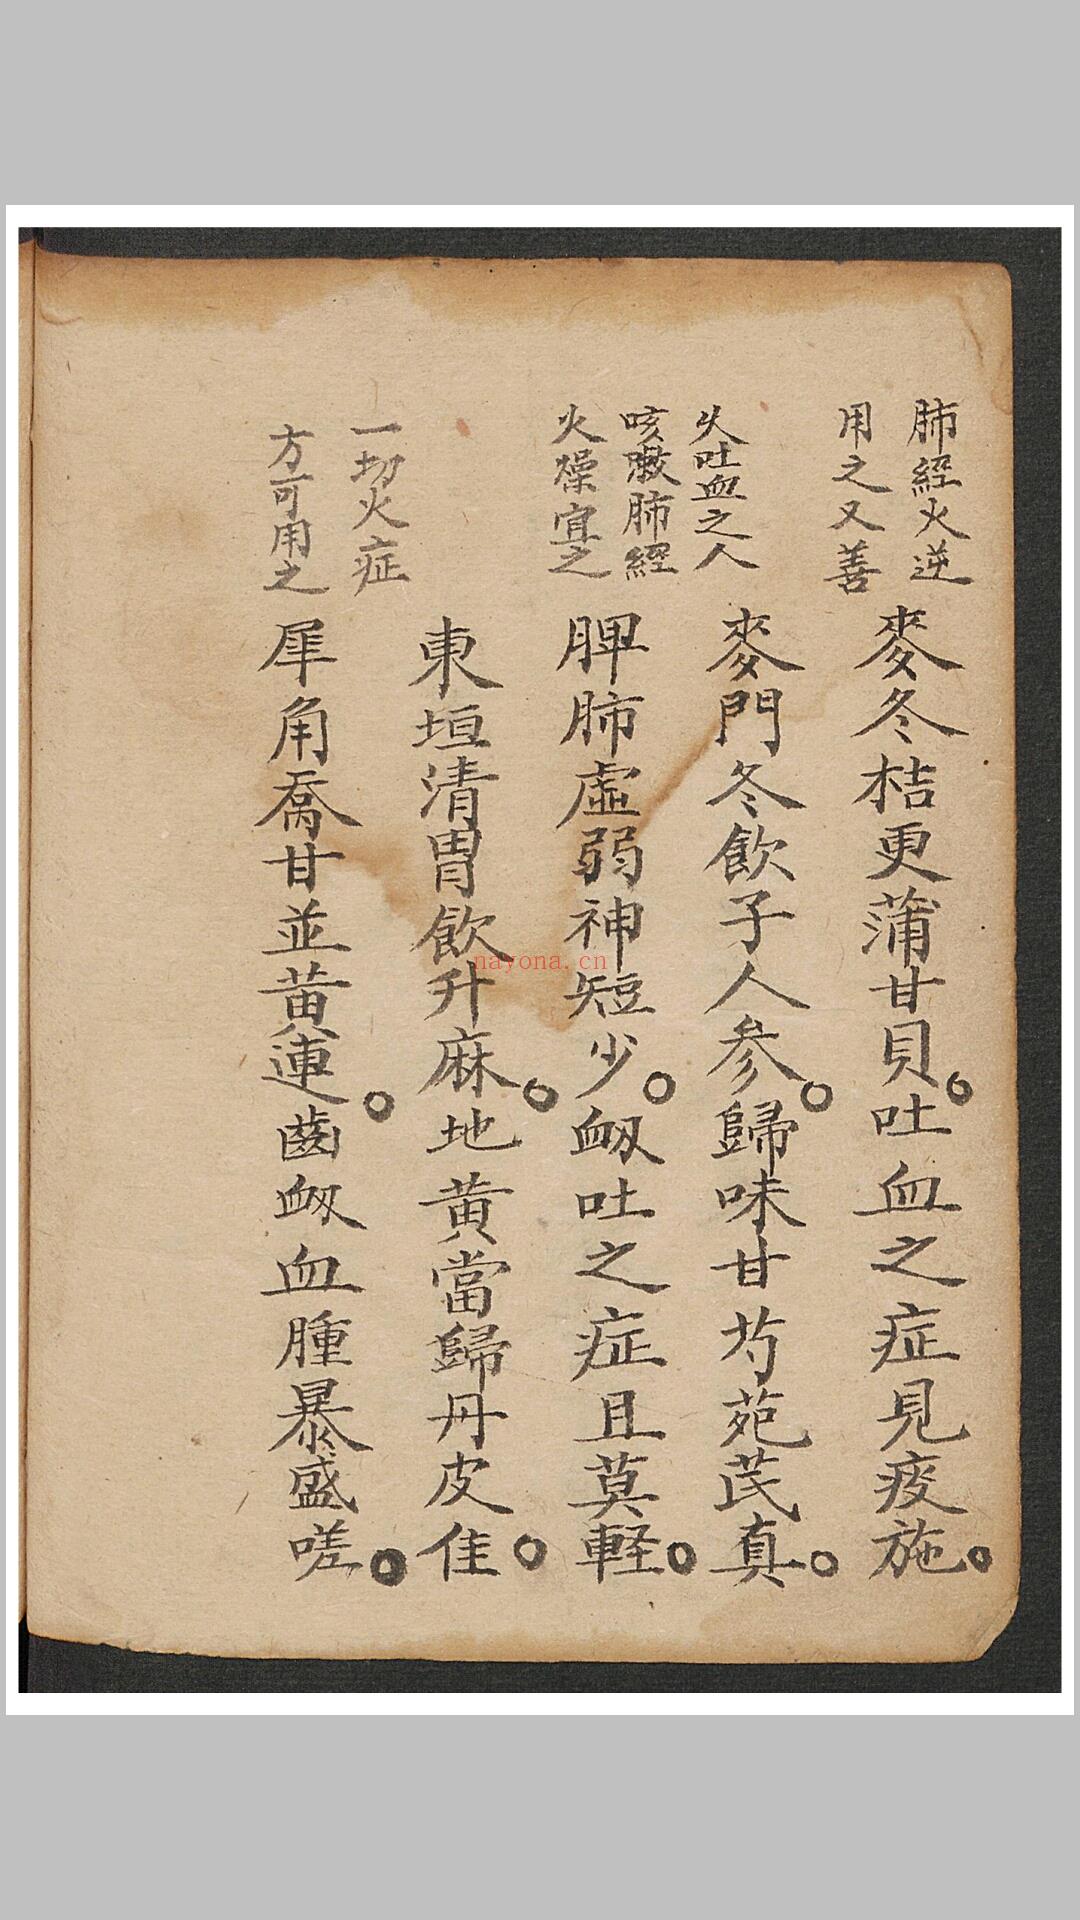 肺經火逆
用之又善
麥冬桔更蒲甘貝。吐血之症見疫施。
火吐血之人
咳嗽肺經
火燥宜之
麥門冬飲子人參。歸味甘芍苑芪真。
脾肺虛弱神短少。衂吐之症且莫輕。
東垣清胃飲升麻。地黄當歸丹皮佳。
一切火症
方可用之
犀角喬甘並黄連。齒衂血腫暴盛嗟。
nayona.cn